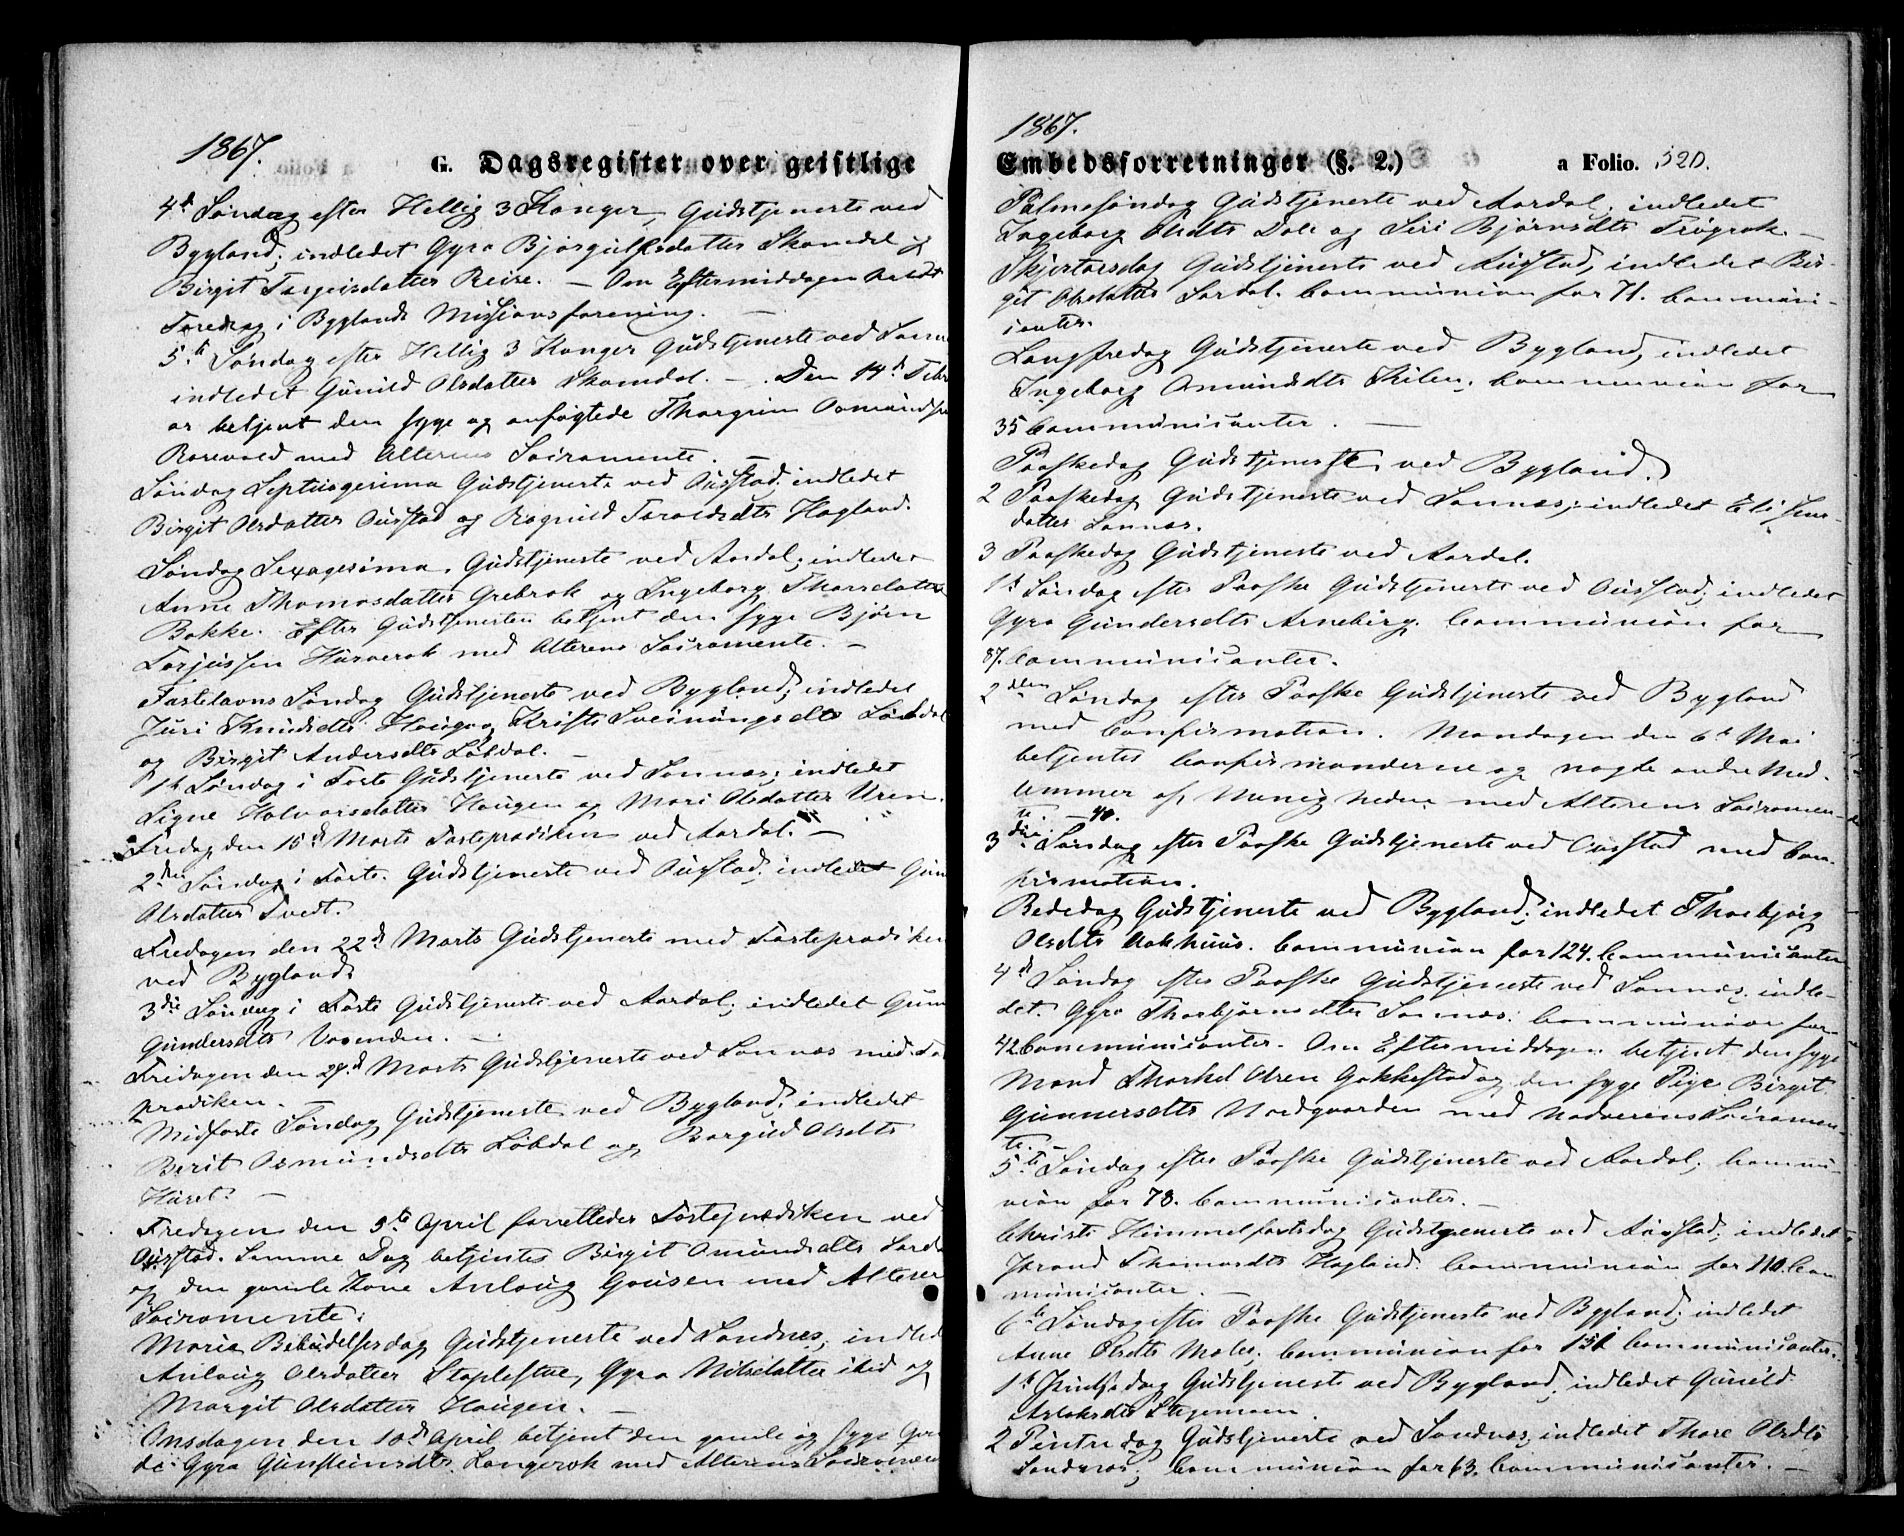 1867.
G. Dagsregister over geistlige
4de Søndag efter Hellig 3 Konger, Gudstjeneste ved
Bygland; indledet Gyro Bjørgulfsdatter Skomdal og
Birgit Torgeirsdatter Reire. — Om Eftermiddagen holdt
Foredrag i Byglands Missionsforening. —
5te Søndag efter Hellig 3 Konger Gudstjeneste ved
indledet Gunild Olsdatter Skomdal. — Den 14de Febr
er betjent den syge og anfægtede Thorgrim Osmundsen
med Alterens Sacramente. —
Søndag Septuagesima Gudstjeneste ved Austad; indledet
Birgit Olsdatter Austad og Rognild Taroldsdtr Hagland.
Søndag Sexagesima. Gudstjeneste ved Aardal; indledet
Anne Thomasdatter Grebrok og Ingeborg Thoresdatter
Bakke. Efter Gudstjenesten betjent den syge Bjørn
Torjussen Hurverok med Alterens Sacramente. —
Fastelavns Søndag Gudstjeneste ved Bygland; indledet
Juri Knudsdtr Haugen, Kristi Sveinungsdtr Løbdal
og Birgit Andersdtr Løbdal. —
1ste Søndag i Faste Gudstjeneste ved Sonnæs; indledet
Signe Halvorsdatter Haugen og Mari Olsdatter Uren.
Fredag den 15de Marts Fasteprædiken ved Aardal. —
2den Søndag i Faste. Gudstjeneste ved Austad; indledet
Olsdatter Tvedt.
Fredagen den 22de Marts Gudstjeneste med Fasteprædiken
ved Bygland.
3die Søndag i Faste Gudstjeneste ved Aardal; indledet
Gundersdtr Vasenden. —
Fredagen den 29de Marts Gudstjeneste ved Sonnæs med
prædiken. —
Midfaste Søndag Gudstjeneste ved Bygland; indledet
Berit Osmundsdtr Løbdal og Borgild Olsdtr
—
Fredagen den 5te April forretledes Fasteprædiken ved
Austad. Samme Dag betjentes Birgit Osmundsdtr
og den gamle Kone Anlaug med Alterens
Sacramente.
Mariæ Bebudelsesdag Gudstjeneste ved Sandnes; indledet
Anlaug Olsdatter Staplestue, Gyro Nilsdatter ibid og
Margit Olsdatter Haugen. —
Onsdagen den 10de April betjent den gamle og syge
Gyro Gunsteinsdtr Langerok med Alterens Sacramente
1867.
Embedsforretninger (§. 2.) a Folio. 520.
Palmesøndag Gudstjeneste ved Aardal, indledet
Ingeborg Olsdtr Dale og Siri Bjørnsdtr Frøyrok. —
Skjertorsdag Gudstjeneste ved Austad, indledet Bir-
git Olsdatter Sordal. Communion for 71. Communi-
canter.
Langfredag Gudstjeneste ved Bygland, indledet
Ingeborg Osmundsdtr Kilen; Communion for
35 Communicanter. —
Paaskedag Gudstjeneste ved Bygland.
2 Paaskedag Gudstjeneste ved Sonnæs; indledet Eli Jens-
datter Sonnæs.
3 Paaskedag Gudstjeneste ved Aardal.
1ste Søndag efter Paaske Gudstjeneste ved Austad; indledet
Gyro Gundersdtr Arneberg. Communion for
87. Communicanter.
2den Søndag efter Paaske Gudstjeneste ved Bygland
med Confirmation. Mandagen den 6te Mai
betjentes Confirmanderne og nogle andre Med-
lemmer af Menigheden med Alterens Sacramen-
te. — 40.
3die Søndag efter Paaske Gudstjeneste ved Austad med Con-
firmation.
Bededag Gudstjeneste ved Bygland; indledet Thorbjørg
Olsdtr Communion for 124. Communicanter
4de Søndag efter Paaske Gudstjeneste ved Sonnæs; indle-
det. Gyro Thorbjørnsdtr Sonnæs. Communion for
42 Communicanter. Om Eftermiddagen betjent den syge
Mand Thorkel Olsen Gakkestad og den syge Pige Birgit
Gunnersdtr Nordgaarden med Nadverens Sacramen-
te. —
5te Søndag efter Paaske Gudstjeneste ved Aardal; Commu-
nion for 78. Communicanter. —
Christi Himmelfartsdag Gudstjeneste ved Austad; indledet
Jorand Thomasdtr Hagland. Communion for 110. Com
municanter. —
6te Søndag efter Paaske Gudstjeneste ved Bygland; indledet
Anne Olsdtr Communion for 151 Communicanter.
1ste Pintsedag Gudstjeneste ved Bygland; indledet Gunild
Aslaksdtr
2 Pintsedag Gudstjeneste ved Sandnæs; indledet Thore Olsdtr
Sandnæs; Communion for 63. Communicanter. —